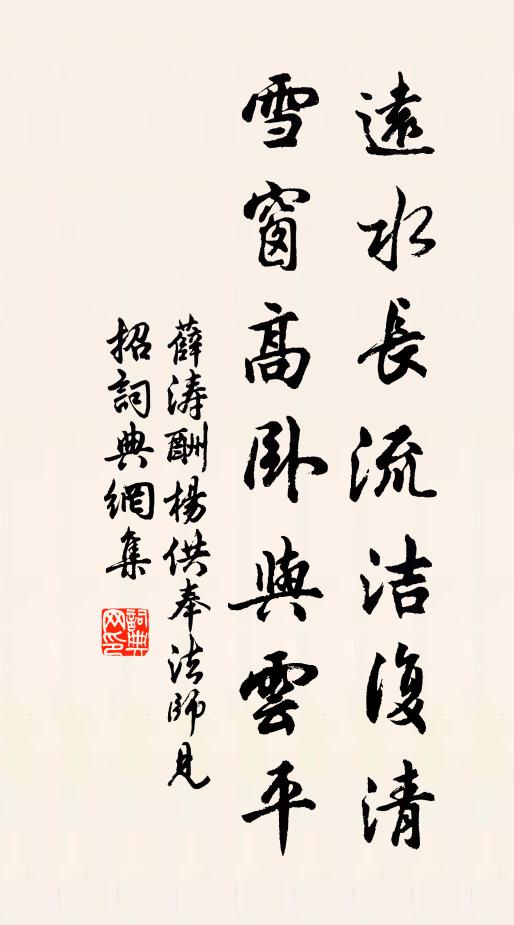 遠水長流洁復清
雪窗高卧與雲平
薛濤酬楊供奉法師見
招詞典網集
詞典
网印